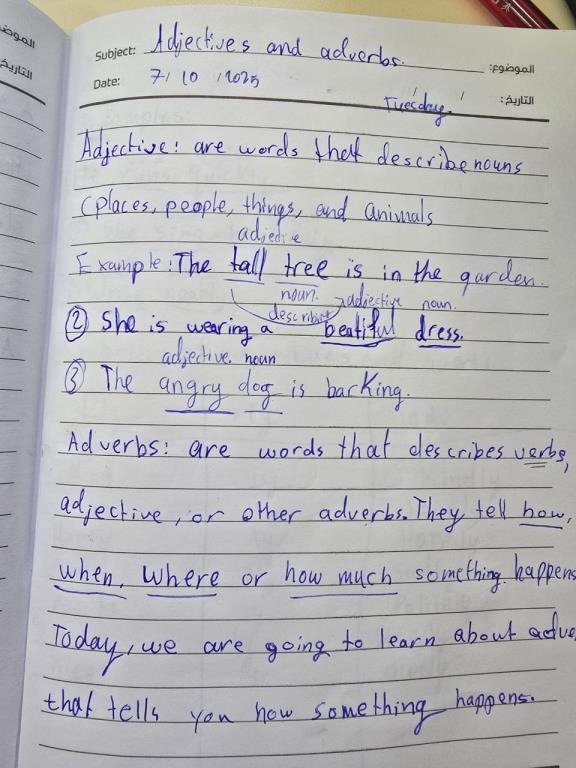 Subject: Adjectives and adverbs. الموضوع:
Date: 7/ 10 /2025 التاريخ:
Tuesday.
Adjective: are words that describe nouns
(places, people, things, and animals
adjective
Example: The tall tree is in the garden.
noun. adjective noun.
describing
② She is wearing a beatiful dress.
adjective. noun
③ The angry dog is barking.
Adverbs: are words that describes verbs,
adjective, or other adverbs. They tell how,
when, where or how much something happens
Today, we are going to learn about adve
that tells you how something happens.